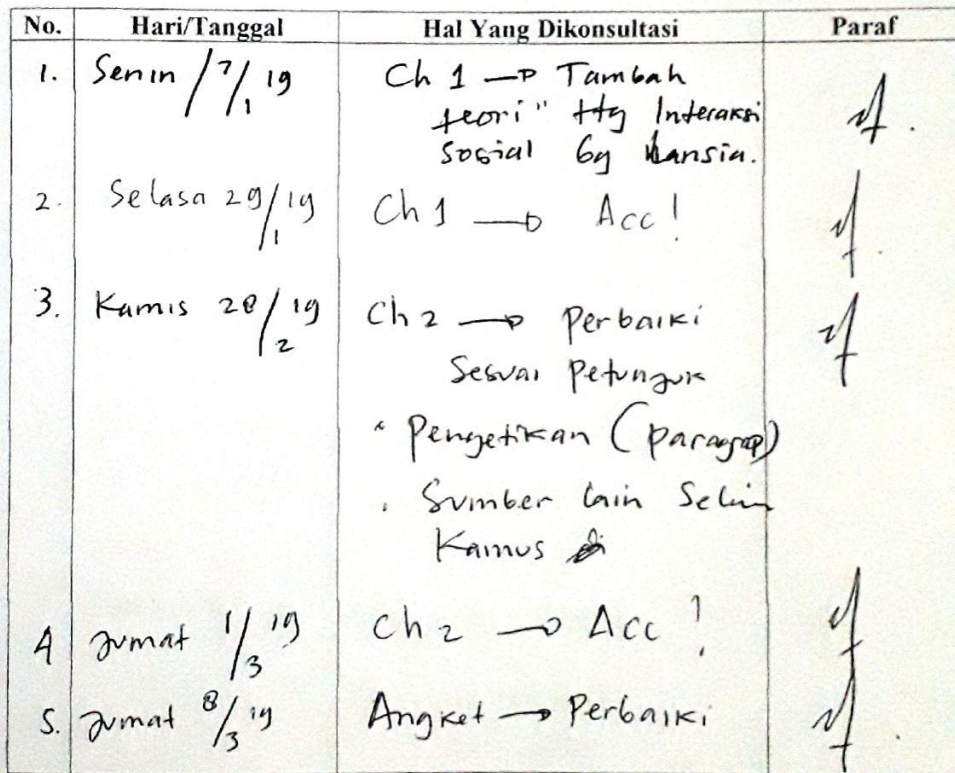 No. Hari/Tanggal Hal Yang Dikonsultasi Paraf
1. Senin / 7/1 19 Ch 1 → Tambah
teori" ttg Interaksi
sosial bg Lansia.
2. Selasa 29/1 19 Ch 1 → Acc!
3. Kamis 28/2 19 Ch 2 → Perbaiki
Sesuai Petunjuk
Pengetikan (paragrap)
Sumber lain Selain
Kamus
4 Jumat 1/3 19 Ch 2 → Acc!
5. Jumat 8/3 19 Angket → Perbaiki